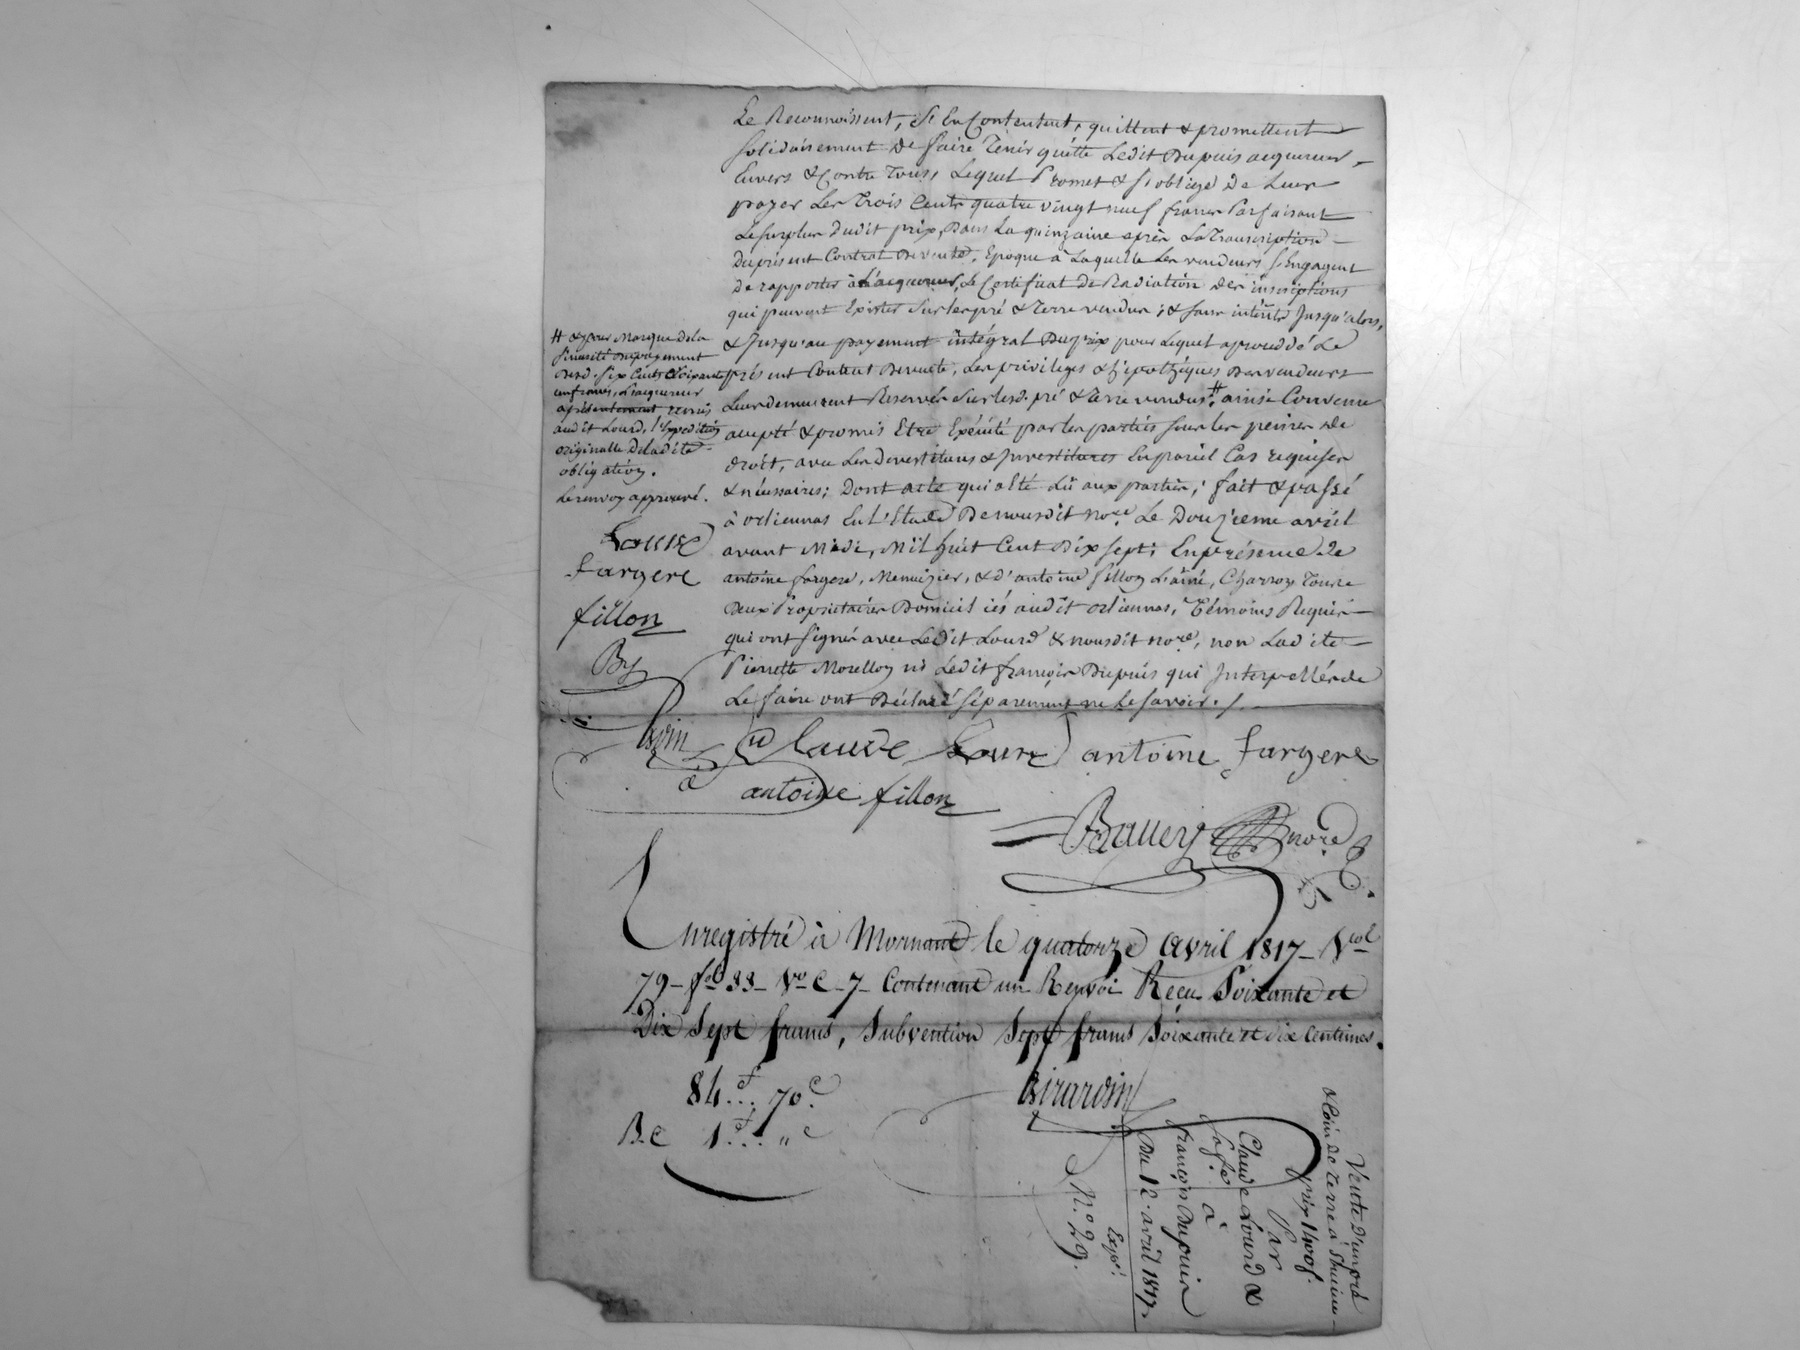 Le Reconnoissent, S'en Contentent, quittent & promettent
solidairement de faire Tenir quitte Ledit Dupuis acquereur,
Envers & Contre Tous, Lequel Promet & s'oblige de Leur
payer Les Trois Cents quatre vingt neuf francs Parfaisant
Le surplus dudit prix, Dans La quinzaine après La Transcription
Du présent Contrat De vente, Epoque à Laquelle Les vendeurs s'Engagent
De rapporter à L'acquereur, Le Certificat de Radiation des inscriptions
qui peuvent Exister sur les pré & Terre vendus; & sans intérêts Jusqu'alors,
& Jusqu'au payement intégral Du prix pour Lequel a procédé Le
présent Contrat De vente, Les privileges & hipothèques Des vendeurs
Leur demeurent Reservés sur lesd. pré & Terre vendus, # ainsi Convenu
accepté & promis Etre Exécuté par les parties sous les peines de
droit, avec Les devestitures & Investitures En pareil Cas requises
& nécessaires; Dont acte qui a été Lû aux parties; fait & passé
à orliennas En L'Etude De nousdit nore. Le Douzieme avril
avant Midi, Mil huit Cent Dix sept; En présence de
antoine fargere, Menuizier, & d'antoine fillon L'aîné, Charron, Tous
Deux Propriétaires Domiciliés audit orliennas, Témoins Requis
qui ont signé avec Ledit Lourd & nousdit nore, non Ladite
Pierrette Morellon ni Ledit françois Dupuis qui Interpellés de
Le faire ont Déclaré séparément ne Le savoir. /.
# & pour Marque de la
sincerité du payement
desd. six Cents soixante
un francs, L'acquereur
a présentement remis
audit Lourd, l'Expedition
originalle De ladite
obligation.
Le renvoy approuvé.
Lourd
fargere
fillon
By
Claude Lourd antoine fargere
antoine fillon
Ballery nore
Enregistré à Mornant le quatorze avril 1817 - Vol
79 - fo 33 - Vo C - 7 - Contenant un Renvoi Reçu Soixante et
Dix Sept francs, Subvention Sept francs Soixante et dix Centimes.
84f.. 70c.
R.C 1f... "c
Girardin
Vente D'un pré
& Coin de terre à
prix 1400f.
Par
Claude Lourd &
sa fe.
à
françois Dupuis
Du 12. avril 1817.
Expé.
N.o 29.